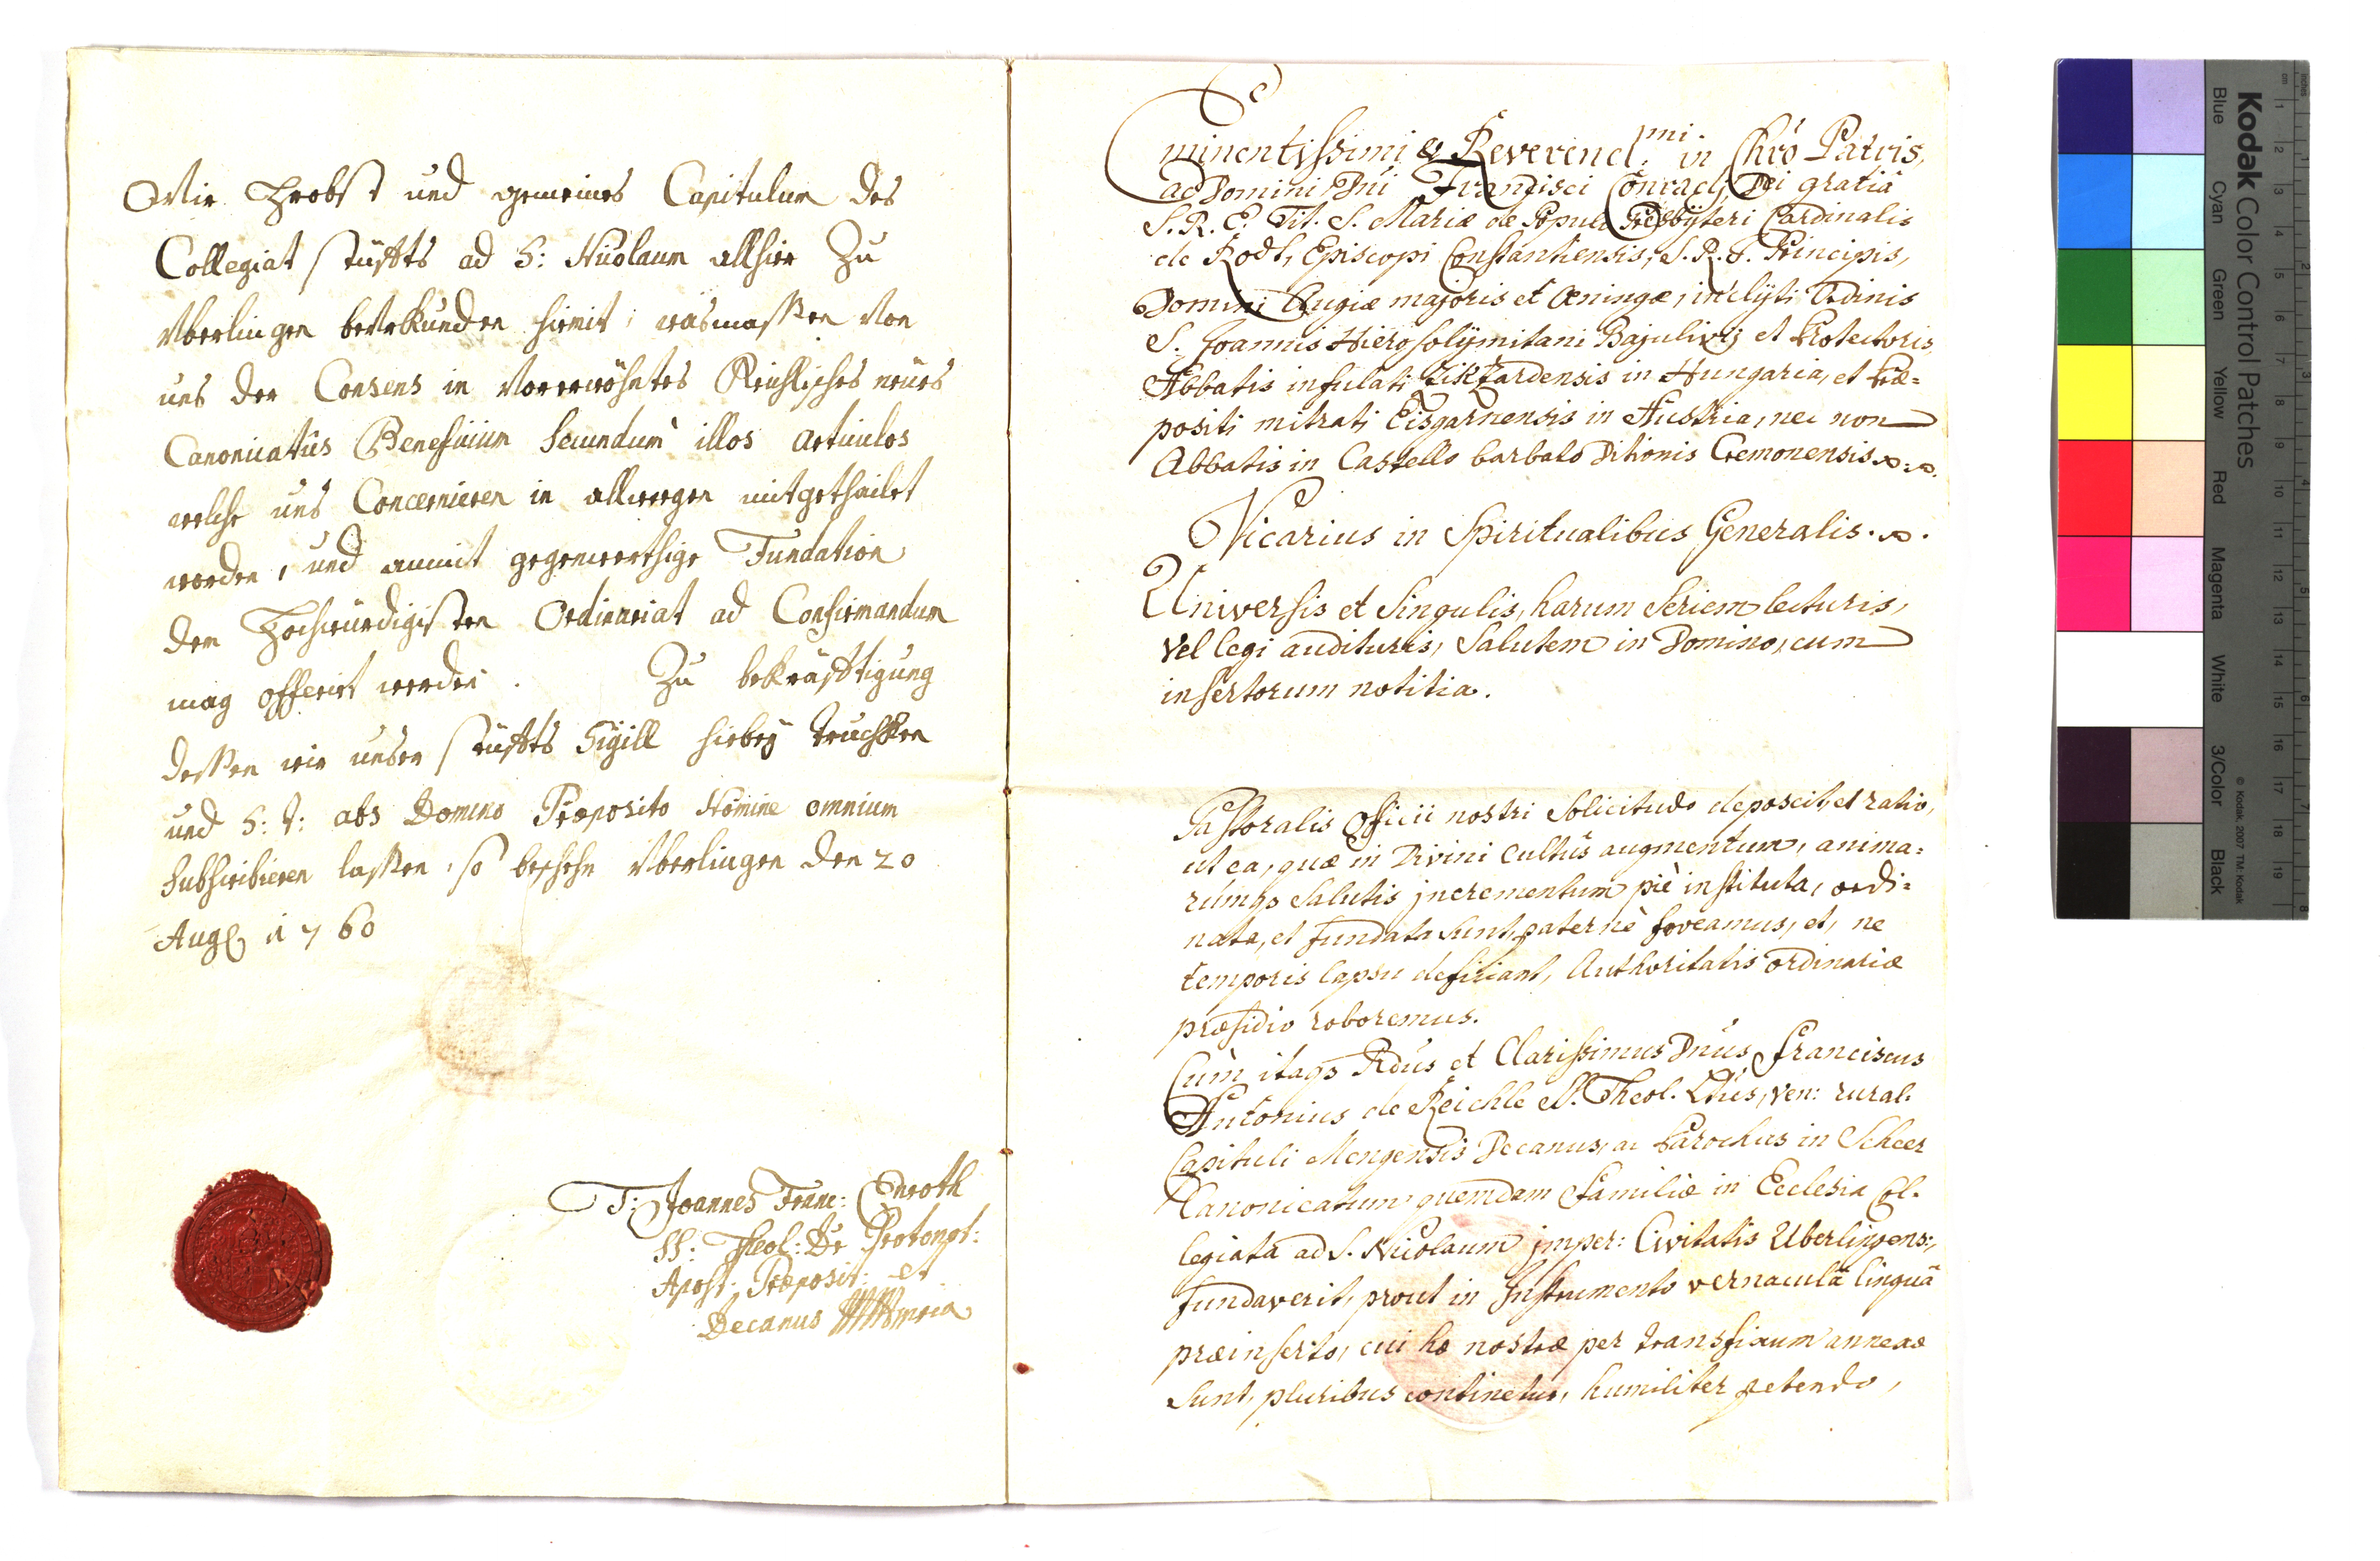 Wir Probst und gemeines Capitulum des
Collegiat stüffts ad S: Nicolaum allhier Zu
Vberlingen beVrkunden hiemit, wasmassen Von
uns der Consens in Vorerwöhntes Reichlisches neües
Canonicatûs Beneficium secundum illos articulos
welche uns Concernieren in allweegen mitgetheilet
worden, und anmit gegenwerthige Fundation
dem Hochwürdigisten Ordinariat ad Confirmandum
mag offerirt werden. Zu bekräfftigung
dessen wir unser stüffts Sigill hiebey truckhen
und S: T: abs Domino Præposito Nomine omnium
subscribieren lassen, so beschehn Vberlingen den 20
Aug. 1760
T: Joannes Franc: Enroth
SS: Theol: Dr Protonot:
Apost: Præposit: et
Decanus mpria
Eminentissimi & Reverend.mi in Chro Patris,
ac Domini Dni Francisci Conradi, Dei gratiâ
S. R. E. Tit. S. Mariæ de Populo Presbÿteri Cardinalis
de Rodt, Episcopi Constantiensis, S. R. J. Principis,
Domini Augiæ majoris et Œningæ, inclÿti Ordinis
S. Joannis Hierosolÿmitani Bajulivi, et Protectoris,
Abbatis infulati Zikzardensis in Hungaria, et Præ=
positi mitrati Eisgarnensis in Austria, nec non
Abbatis in Castello barbato Ditionis Cremonensis
Vicarius in Spiritualibus Generalis.
Universis et Singulis, harum Seriem lecturis,
vel legi audituris, Salutem in Domino, cum
insertorum notitia.
Pastoralis Officii nostri Solicitudo deposcit, et ratio,
ut ea, quæ in Divini Cultûs augmentum, anima=
rúmqs Salutis jncrementum piè instituta, ordi=
nata, et fundata sunt, paternè foveamus, et, ne
temporis lapsu deficiant, Authoritatis ordinariæ
præsidio roboremus.
Cùm itaqs Rdus et Clarissimus Dnus Franciscus
Antonius de Reichle SS. Theol. Ltus, ven: rural.
Capituli Mengensis Decanus, ac Parochus in Scheer
Canonicatum quemdam Familiæ in Ecclesia Col-
legiata ad S. Nicolaum jmper: Civitatis Uberlingens:,
fundaverit, prout in Jnstrumento vernaculâ linguâ
præinserto, cui hæ nostræ per transfixum annexæ
sunt, pluribus continetur, humiliter petendo,
Kodak Color Control Patches
Blue Cyan Green Yellow Red Magenta White 3/Color Black
© Kodak, 2007 TM: Kodak
cm 1 2 3 4 5 6 7 8 9 10 11 12 13 14 15 16 17 18 19
inches 1 2 3 4 5 6 7 8